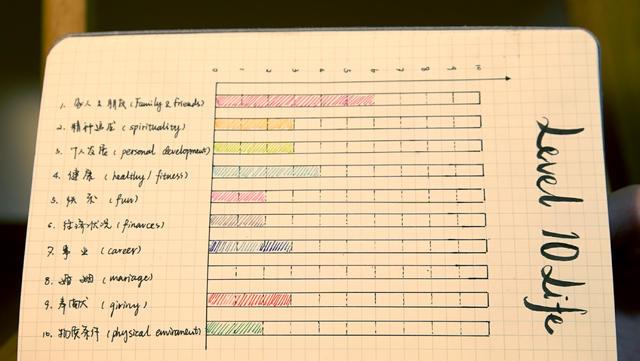 0 1 2 3 4 5 6 7 8 9 10
1. 家人&朋友 (Family & friends)
2. 精神追求 (spirituality)
3. 个人发展 (personal development)
4. 健康 (healthy / fitness)
5. 快乐 (fun)
6. 经济状况 (finances)
7. 事业 (career)
8. 婚姻 (mariage)
9. (giving)
10. 物质条件 (physical enviroment)
Level 10 Life